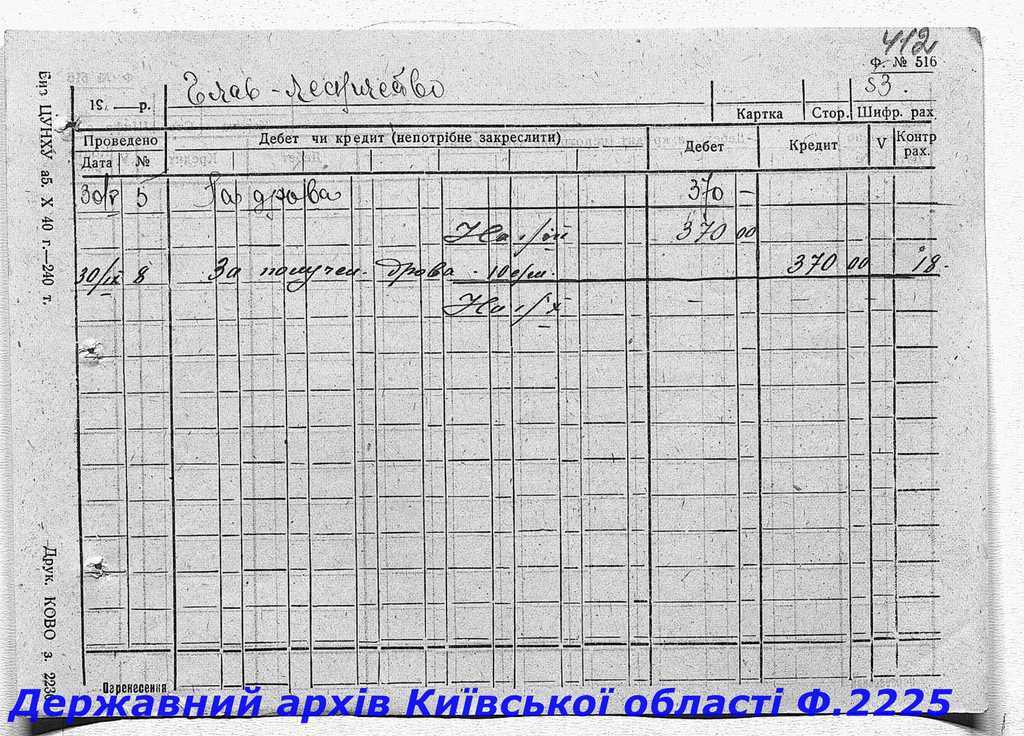 412
Ф. № 516
Глав-лесничество
53.
19 — р.
Картка
Стор.
Шифр. рах
Проведено
Дебет чи кредит (непотрібне закреслити)
Дебет
Кредит
V
Контр рах.
Дата
№
30/V 5 За дрова 370 —
На 370 00
30/IX 8 За получен. дрова 370 00 18.
На — — —
Перенесення
Биз ЦУНХУ аб. Х 40 г.—240 т.
Друк. КОВО з.
Державний архів Київської області Ф.2225